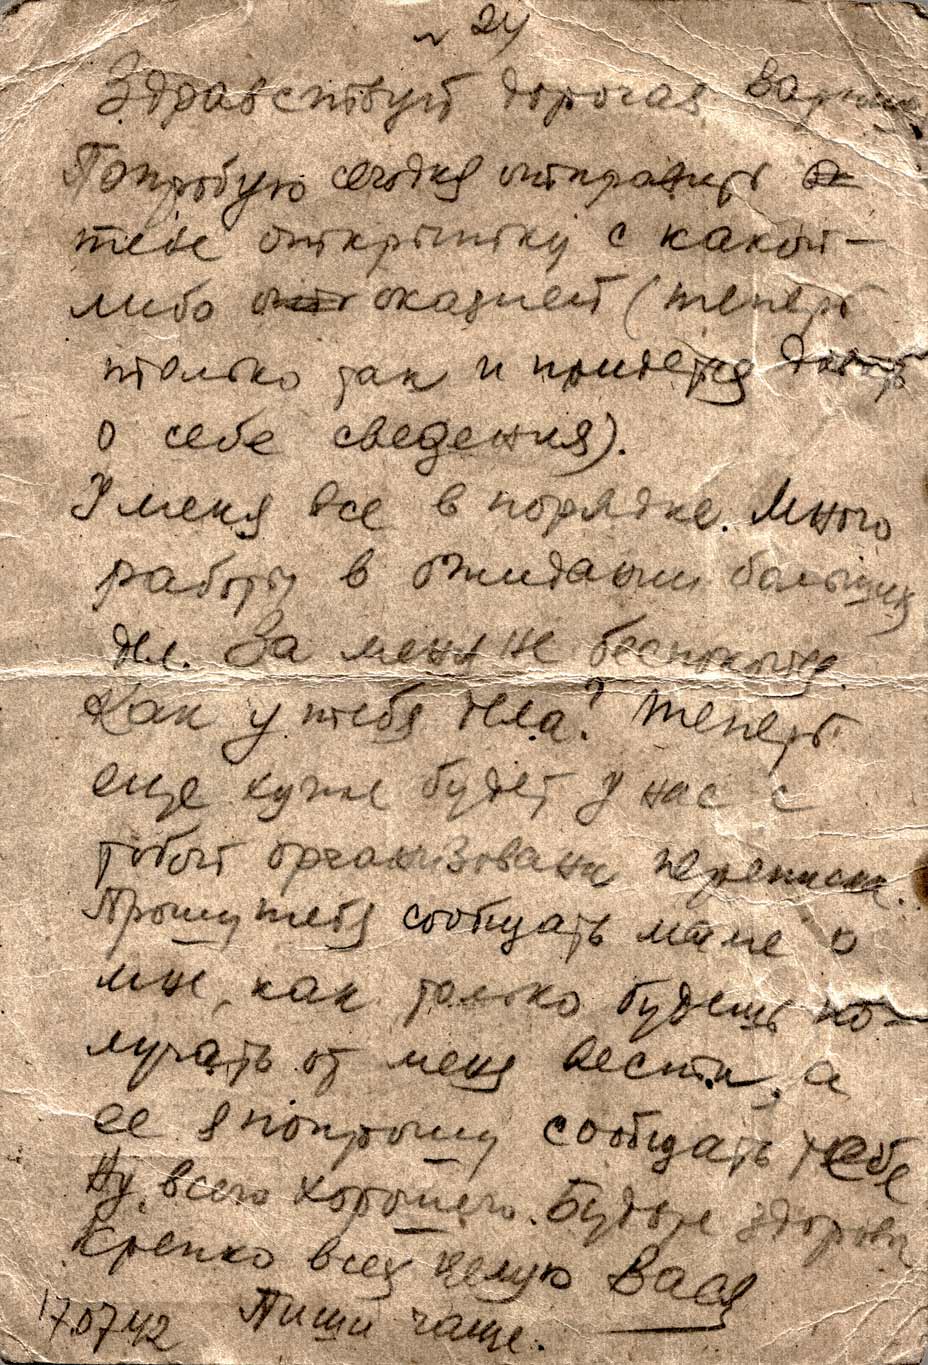 № 24
Здравствуй дорогая Варюша
Попробую сегодня отправить
тебе открытку с какой-
либо оказией (теперь
только так и придется давать
о себе сведения).
У меня все в порядке. Много
работы в ожидании больших
дел. За меня не беспокойтесь.
Как у тебя дела? Теперь
еще хуже будет у нас с
тобой организована переписка.
Прошу тебя сообщать маме о
мне, как только будешь по-
лучать от меня вести, а
ее я попрошу сообщать тебе
Ну всего хорошего. Будьте здоровы
Крепко всех целую Вася
17.07.42 Пиши чаще.